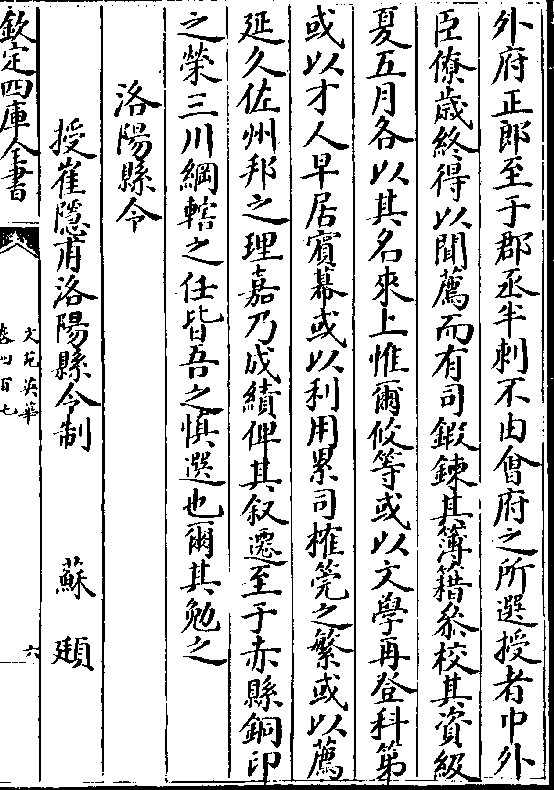 外府正郎至于郡丞半刺不由會府之所選授者中外
臣僚歳終得以聞薦而有司鍜鍊其簿籍叅校其資級
夏五月各以其名來上惟爾攸等或以文學再登科第
或以才人早居賓幕或以利用累司搉筦之繁或以薦
延久佐州邦之理嘉乃成績俾其叙遷至于赤縣銅印
之榮三川綱轄之任皆吾之慎選也爾其勉之
洛陽縣令
授崔隱甫洛陽縣令制 蘇頲
欽定四庫全書
文苑英華
卷四百七
六